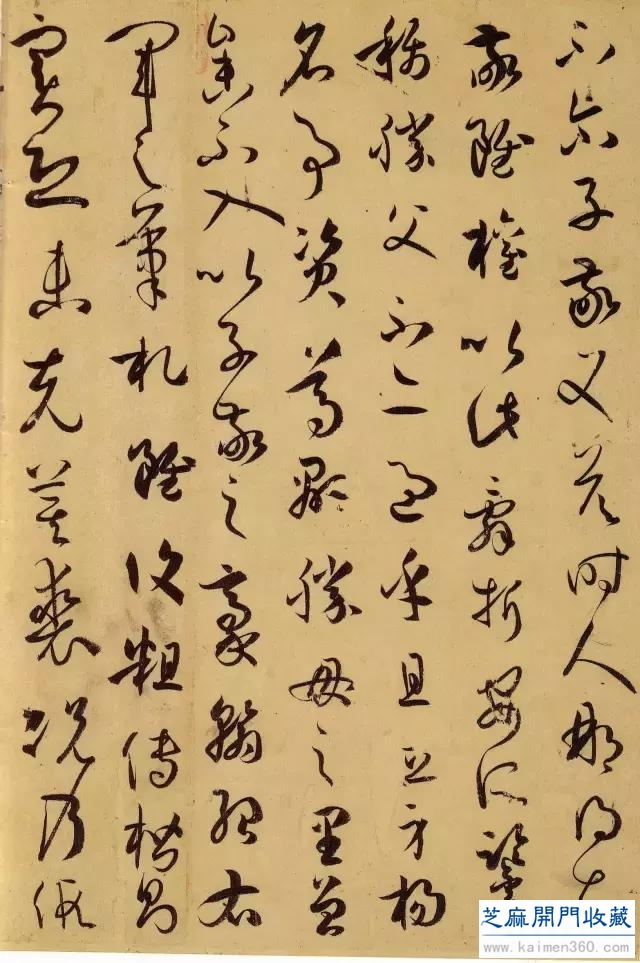 不尒子敬又答時人那得知
敬雖權以此辭折安所鑒
稱勝父不亦過乎且立身揚
名事資尊顯勝母之里曾
參不入以子敬之豪翰紹右
軍之筆札雖復粗傳楷則
實恐未克箕裘況乃假
芝麻開門收藏
www.kaimen360.com